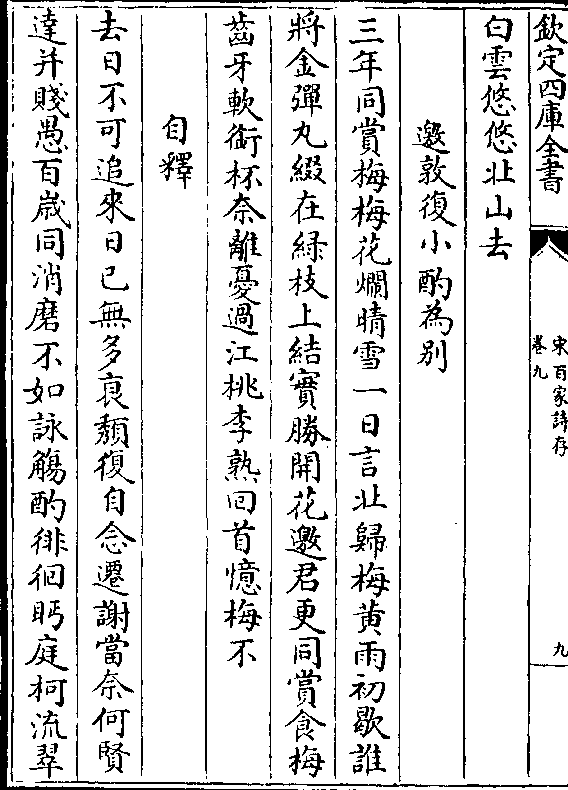 欽定四庫全書
宋百家詩存
卷九
九
白雲悠悠北山去
邀敦復小酌為別
三年同賞梅梅花爛晴雪一日言北歸梅黄雨初歇誰
將金彈丸綴在緑枝上結實勝開花邀君更同賞食梅
齒牙軟銜杯奈離憂過江桃李熟回首憶梅不
自釋
去日不可追來日已無多衰頽復自念遷謝當奈何賢
達并賤愚百歲同消磨不如詠觴酌徘徊眄庭柯流翠